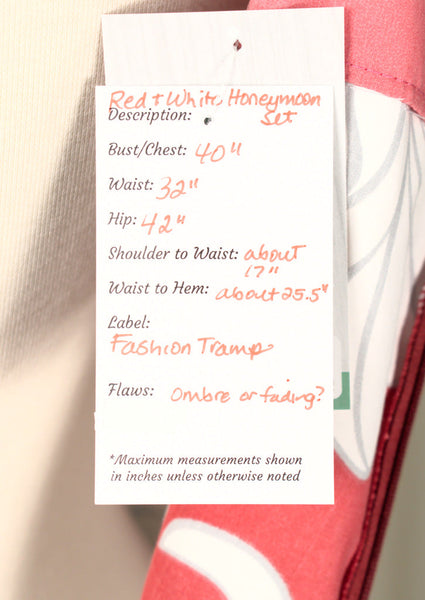 Red + White Honeymoon
Description: Set
Bust/Chest: 40"
Waist: 32"
Hip: 42"
Shoulder to Waist: about
17"
Waist to Hem: about 25.5"
Label:
Fashion Tramp
Flaws: Ombre or fading?
*Maximum measurements shown
in inches unless otherwise noted